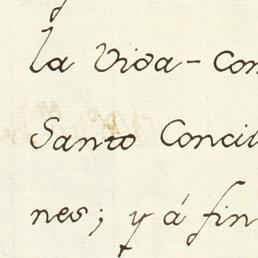 la Vida-con
Santo Concil
nes; y á fin